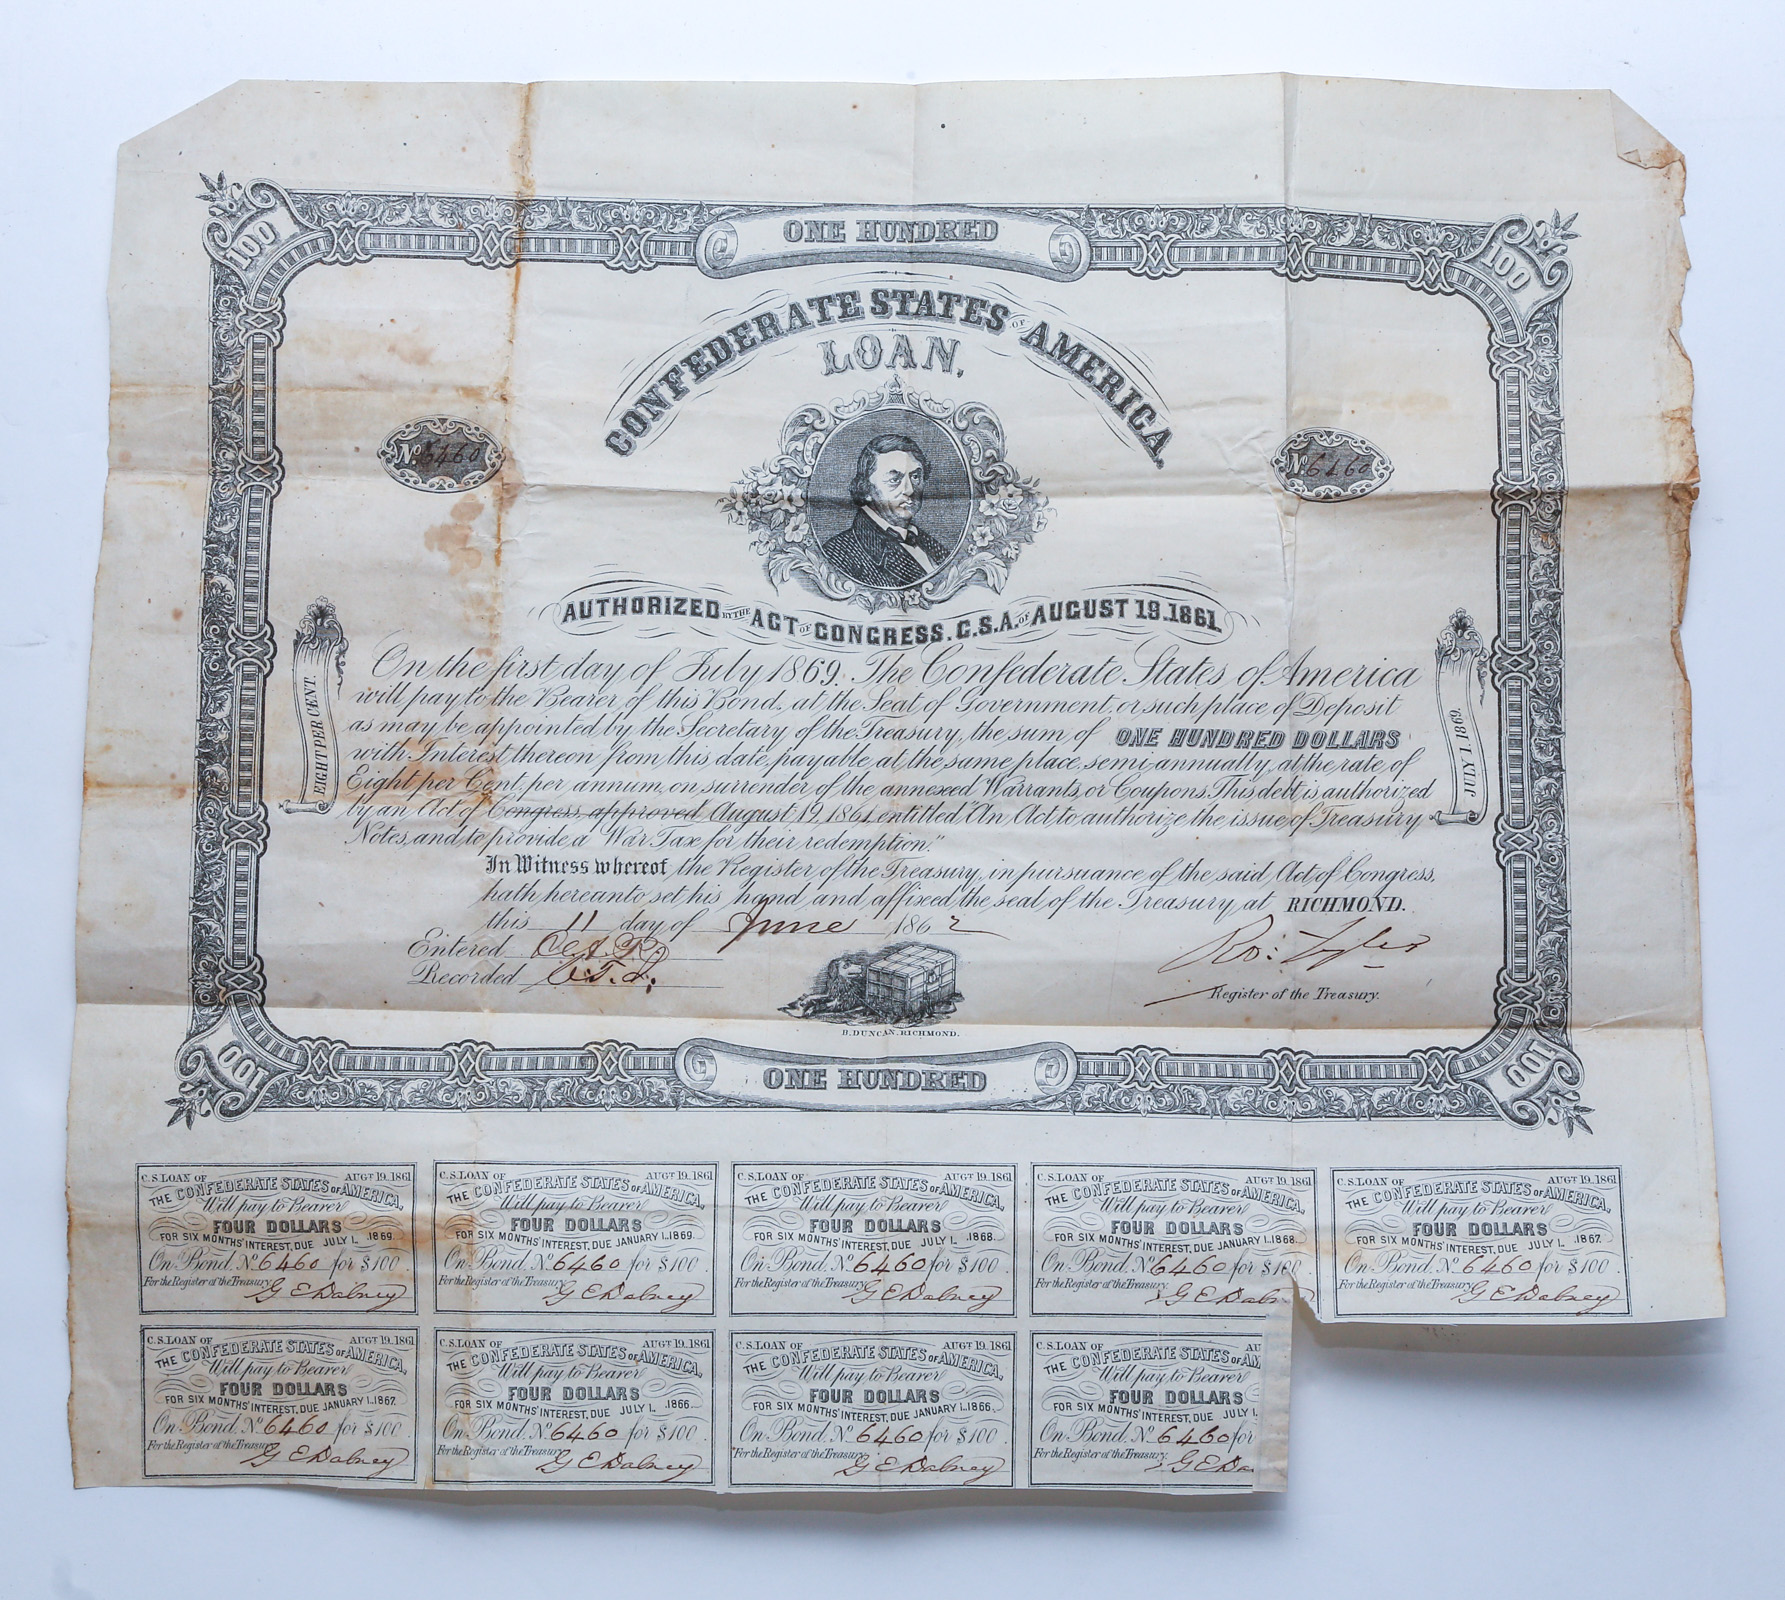 ONE HUNDRED
100 100
CONFEDERATE STATES OF AMERICA.
LOAN,
No. 6460 No. 6460
AUTHORIZED BY THE ACT OF CONGRESS. C.S.A. OF AUGUST 19. 1861.
EIGHT PER CENT.
JULY 1. 1869.
On the first day of July 1869. The Confederate States of America
will pay to the Bearer of this Bond, at the Seat of Government, or such place of Deposit
as may be appointed by the Secretary of the Treasury, the sum of ONE HUNDRED DOLLARS
with Interest thereon from this date, payable at the same place, semi-annually, at the rate of
Eight per Cent. per annum, on surrender of the annexed Warrants, or Coupons. This debt is authorized
by an Act of Congress, approved August 19, 1861, entitled "An Act to authorize the issue of Treasury
Notes, and to provide a War Tax for their redemption."
In Witness whereof, the Register of the Treasury, in pursuance of the said Act of Congress,
hath hereunto set his hand and affixed the seal of the Treasury, at RICHMOND.
this 11 day of June 1862
Entered
Recorded
Ro: Tyler
Register of the Treasury.
B. DUNCAN. RICHMOND.
ONE HUNDRED
100 100
C.S. LOAN OF AUGT 19. 1861
THE CONFEDERATE STATES OF AMERICA,
Will pay to Bearer
FOUR DOLLARS
FOR SIX MONTHS' INTEREST, DUE JULY 1. 1869.
On Bond. No. 6460 for $100.
For the Register of the Treasury.
G E Dabney
C.S. LOAN OF AUGT 19. 1861
THE CONFEDERATE STATES OF AMERICA,
Will pay to Bearer
FOUR DOLLARS
FOR SIX MONTHS' INTEREST, DUE JANUARY 1. 1869.
On Bond. No. 6460 for $100.
For the Register of the Treasury.
G E Dabney
C.S. LOAN OF AUGT 19. 1861
THE CONFEDERATE STATES OF AMERICA,
Will pay to Bearer
FOUR DOLLARS
FOR SIX MONTHS' INTEREST, DUE JULY 1. 1868.
On Bond. No. 6460 for $100.
For the Register of the Treasury.
G E Dabney
C.S. LOAN OF AUGT 19. 1861
THE CONFEDERATE STATES OF AMERICA,
Will pay to Bearer
FOUR DOLLARS
FOR SIX MONTHS' INTEREST, DUE JANUARY 1. 1868.
On Bond. No. 6460 for $100.
For the Register of the Treasury.
G E Dabn
C.S. LOAN OF AUGT 19. 1861
THE CONFEDERATE STATES OF AMERICA,
Will pay to Bearer
FOUR DOLLARS
FOR SIX MONTHS' INTEREST, DUE JULY 1. 1867.
On Bond. No. 6460 for $100.
For the Register of the Treasury.
G E Dabney
C.S. LOAN OF AUGT 19. 1861
THE CONFEDERATE STATES OF AMERICA,
Will pay to Bearer
FOUR DOLLARS
FOR SIX MONTHS' INTEREST, DUE JANUARY 1. 1867.
On Bond. No. 6460 for $100.
For the Register of the Treasury.
G E Dabney
C.S. LOAN OF AUGT 19. 1861
THE CONFEDERATE STATES OF AMERICA,
Will pay to Bearer
FOUR DOLLARS
FOR SIX MONTHS' INTEREST, DUE JULY 1. 1866.
On Bond. No. 6460 for $100.
For the Register of the Treasury.
G E Dabney
C.S. LOAN OF AUGT 19. 1861
THE CONFEDERATE STATES OF AMERICA,
Will pay to Bearer
FOUR DOLLARS
FOR SIX MONTHS' INTEREST, DUE JANUARY 1. 1866.
On Bond. No. 6460 for $100.
For the Register of the Treasury.
G E Dabney
C.S. LOAN OF AU
THE CONFEDERATE STATES OF AM
Will pay to Bearer
FOUR DOLLARS
FOR SIX MONTHS' INTEREST, DUE JULY 1.
On Bond. No. 6460 for
For the Register of the Treasury.
G E Da